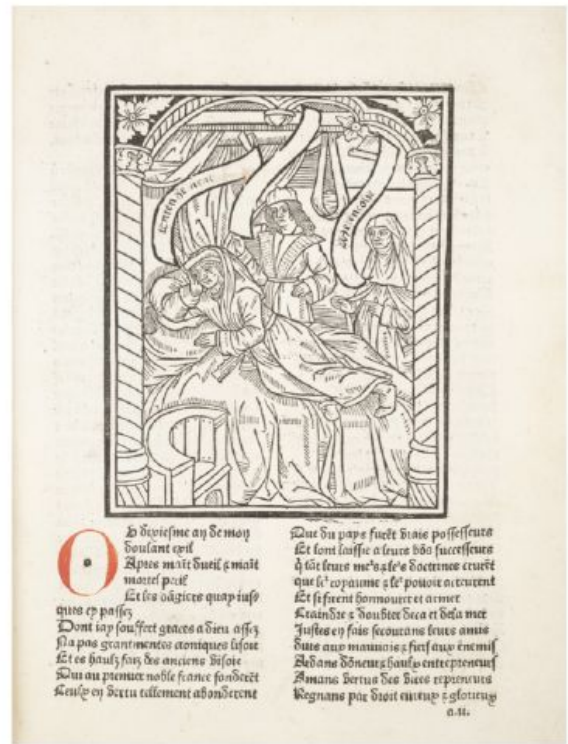 Ov dixiesme an de mon
doulant exil
Apres mait dueil & mait
mortel peril
Et les dāgiers quay ius
ques cy passez
Dont iay souffert graces a dieu assez
Na pas grantment es croniques lisoie
Et es haulz faiz des anciens visoie
Qui au premier noble france fonderēt
Ceulx en vertu tellement abonderent
Que du pays furēt vrais possesseurs
Et lont laissie a leurs bōs successeurs
q̄ tāt leurs & doctrines creurēt
que royaume & pouoir acreurent
Et si firent honnourer et armer
Craindre & doubter deca et dela mer
Justes en fais secourans leurs amis
durs aux mauuois & fiers aux ēnemis
Ardans dōneur & haulx entrepreneurs
Amans vertus des vices repreneurs
Regnans par droit eureux & glorieux
a.ii.